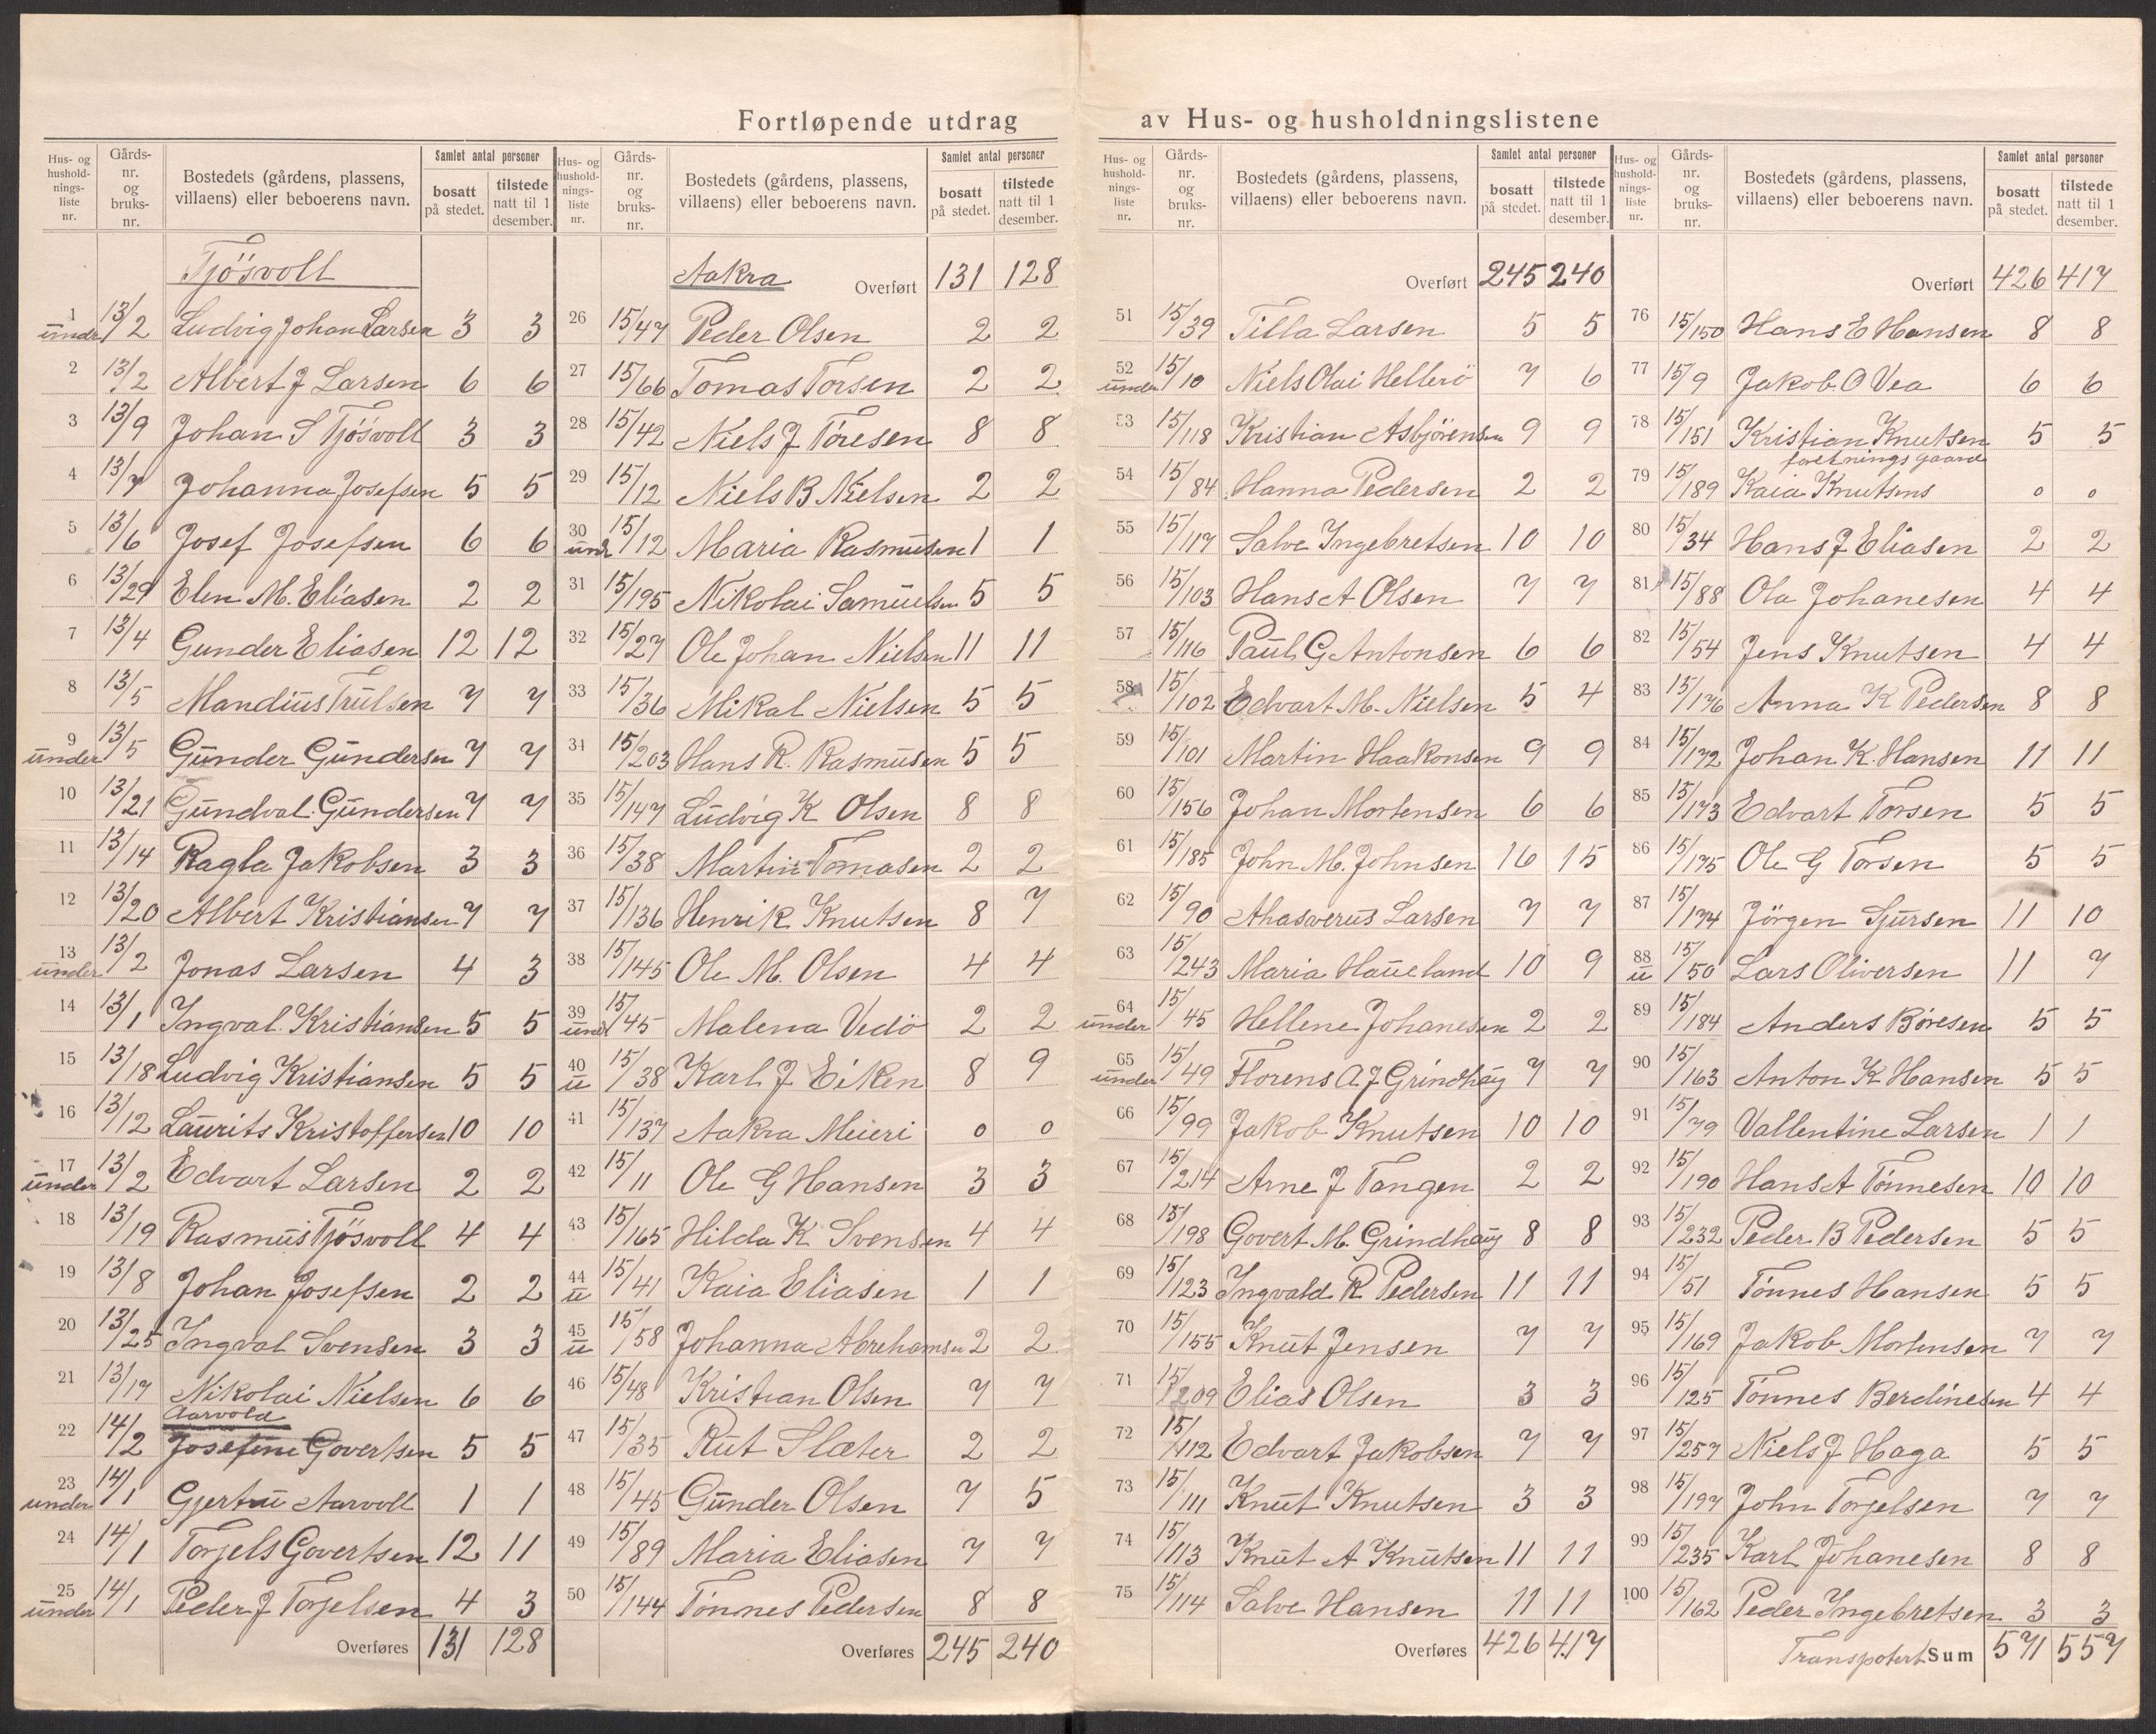 Fortløpende utdrag av Hus- og husholdningslistene
Hus- og husholdnings-liste nr. | Gårds-nr. og bruks-nr. | Bostedets (gårdens, plassens, villaens) eller beboerens navn. | Samlet antal personer bosatt på stedet. | tilstede natt til 1 desember.
Tjösvoll
1 under 13/2 Ludvig Johan Larsen 3 3
2 13/2 Albert J Larsen 6 6
3 13/9 Johan S Tjösvoll 3 3
4 13/7 Johanna Josefsen 5 5
5 13/6 Josef Josefsen 6 6
6 13/29 Elen M. Eliasen 2 2
7 13/4 Gunder Eliasen 12 12
8 13/5 Mandius Trulsen 7 7
9 under 13/5 Gunder Gundersen 7 7
10 13/21 Gundval Gundersen 7 7
11 13/14 Ragla Jakobsen 3 3
12 13/20 Albert Kristiansen 7 7
13 under 13/2 Jonas Larsen 4 3
14 13/1 Ingval Kristiansen 5 5
15 13/18 Ludvig Kristiansen 5 5
16 13/12 Laurits Kristoffersen 10 10
17 under 13/2 Edvart Larsen 2 2
18 13/19 Rasmus Tjösvoll 4 4
19 13/8 Johan Josefsen 2 2
20 13/25 Ingval Svensen 3 3
21 13/17 Nikolai Nielsen 6 6
Aarvold
22 14/2 Josefine Govertsen 5 5
23 under 14/1 Gjertru Aarvoll 1 1
24 14/1 Torjels Govertsen 12 11
25 under 14/1 Peder J Torjelsen 4 3
Overføres 131 128
Hus- og husholdnings-liste nr. | Gårds-nr. og bruks-nr. | Bostedets (gårdens, plassens, villaens) eller beboerens navn. | Samlet antal personer bosatt på stedet. | tilstede natt til 1 desember.
Aakra Overført 131 128
26 15/47 Peder Olsen 2 2
27 15/66 Tomas Torsen 2 2
28 15/42 Niels J Töresen 8 8
29 15/12 Niels B Nielsen 2 2
30 und 15/12 Maria Rasmusen 1 1
31 15/195 Nikolai Samuelsen 5 5
32 15/27 Ole Johan Nielsen 11 11
33 15/36 Mikal Nielsen 5 5
34 15/203 Hans R. Rasmusen 5 5
35 15/147 Ludvig K Olsen 8 8
36 15/38 Martin Tomasen 2 2
37 15/136 Henrik Knutsen 8 7
38 15/145 Ole M. Olsen 4 4
39 und 15/45 Malena Vedö 2 2
40 u 15/38 Karl J Eiken 8 9
41 15/137 Aakra Meieri 0 0
42 15/11 Ole G Hansen 3 3
43 15/165 Hilda K Svensen 4 4
44 u 15/41 Kaia Eliasen 1 1
45 u 15/58 Johanna Abrehamsen 2 2
46 15/48 Kristian Olsen 7 7
47 15/35 Rut Slæter 2 2
48 15/45 Gunder Olsen 7 5
49 15/89 Maria Eliasen 7 7
50 15/144 Tönnes Pedersen 8 8
Overføres 245 240
Hus- og husholdnings-liste nr. | Gårds-nr. og bruks-nr. | Bostedets (gårdens, plassens, villaens) eller beboerens navn. | Samlet antal personer bosatt på stedet. | tilstede natt til 1 desember.
Overført 245 240
51 15/39 Tilla Larsen 5 5
52 under 15/10 Niels Olai Hellerö 7 6
53 15/118 Kristian Asbjörensen 9 9
54 15/84 Hanna Pedersen 2 2
55 15/117 Salve Ingebretsen 10 10
56 15/103 Hans A Olsen 7 7
57 15/116 Paul G Antonsen 6 6
58 15/102 Edvart M. Nielsen 5 4
59 15/101 Martin Haakonsen 9 9
60 15/156 Johan Mortensen 6 6
61 15/185 John M. Johnsen 16 15
62 15/90 Ahasverus Larsen 7 7
63 15/243 Maria Haueland 10 9
64 under 15/45 Hellene Johanesen 2 2
65 under 15/49 Florens A J Grindhaug 7 7
66 15/99 Jakob Knutsen 10 10
67 15/214 Arne J Tangen 2 2
68 15/198 Govert M. Grindhaug 8 8
69 15/123 Ingvald R Pedersen 11 11
70 15/155 Knut Jensen 7 7
71 15/209 Elias Olsen 3 3
72 15/112 Edvart Jakobsen 7 7
73 15/111 Knut Knutsen 3 3
74 15/113 Knut A Knutsen 11 11
75 15/114 Salve Hansen 11 11
Overføres 426 417
Hus- og husholdnings-liste nr. | Gårds-nr. og bruks-nr. | Bostedets (gårdens, plassens, villaens) eller beboerens navn. | Samlet antal personer bosatt på stedet. | tilstede natt til 1 desember.
Overført 426 417
76 15/150 Hans E Hansen 8 8
77 15/9 Jakob O Vea 6 6
78 15/151 Kristian Knutsen 5 5
foretnings gaard
79 15/189 Kaia Knutsens 0 0
80 15/34 Hans J Eliasen 2 2
81 15/88 Ola Johanesen 4 4
82 15/54 Jens Knutsen 4 4
83 15/176 Anna K Pedersen 8 8
84 15/172 Johan K. Hansen 11 11
85 15/173 Edvart Torsen 5 5
86 15/175 Ole G Torsen 5 5
87 15/174 Jörgen Sjursen 11 10
88 u 15/50 Lars Oliversen 11 7
89 15/184 Anders Böresen 5 5
90 15/163 Anton K Hansen 5 5
91 15/79 Vallentine Larsen 1 1
92 15/190 Hans A Tönnesen 10 10
93 15/232 Peder B Pedersen 5 5
94 15/51 Tönnes Hansen 5 5
95 15/169 Jakob Mortensen 7 7
96 15/125 Tönnes Berdinesen 4 4
97 15/257 Niels J Haga 5 5
98 15/197 John Torjelsen 7 7
99 15/235 Karl Johanesen 8 8
100 15/162 Peder Ingebretsen 3 3
Transpotert Sum 571 557